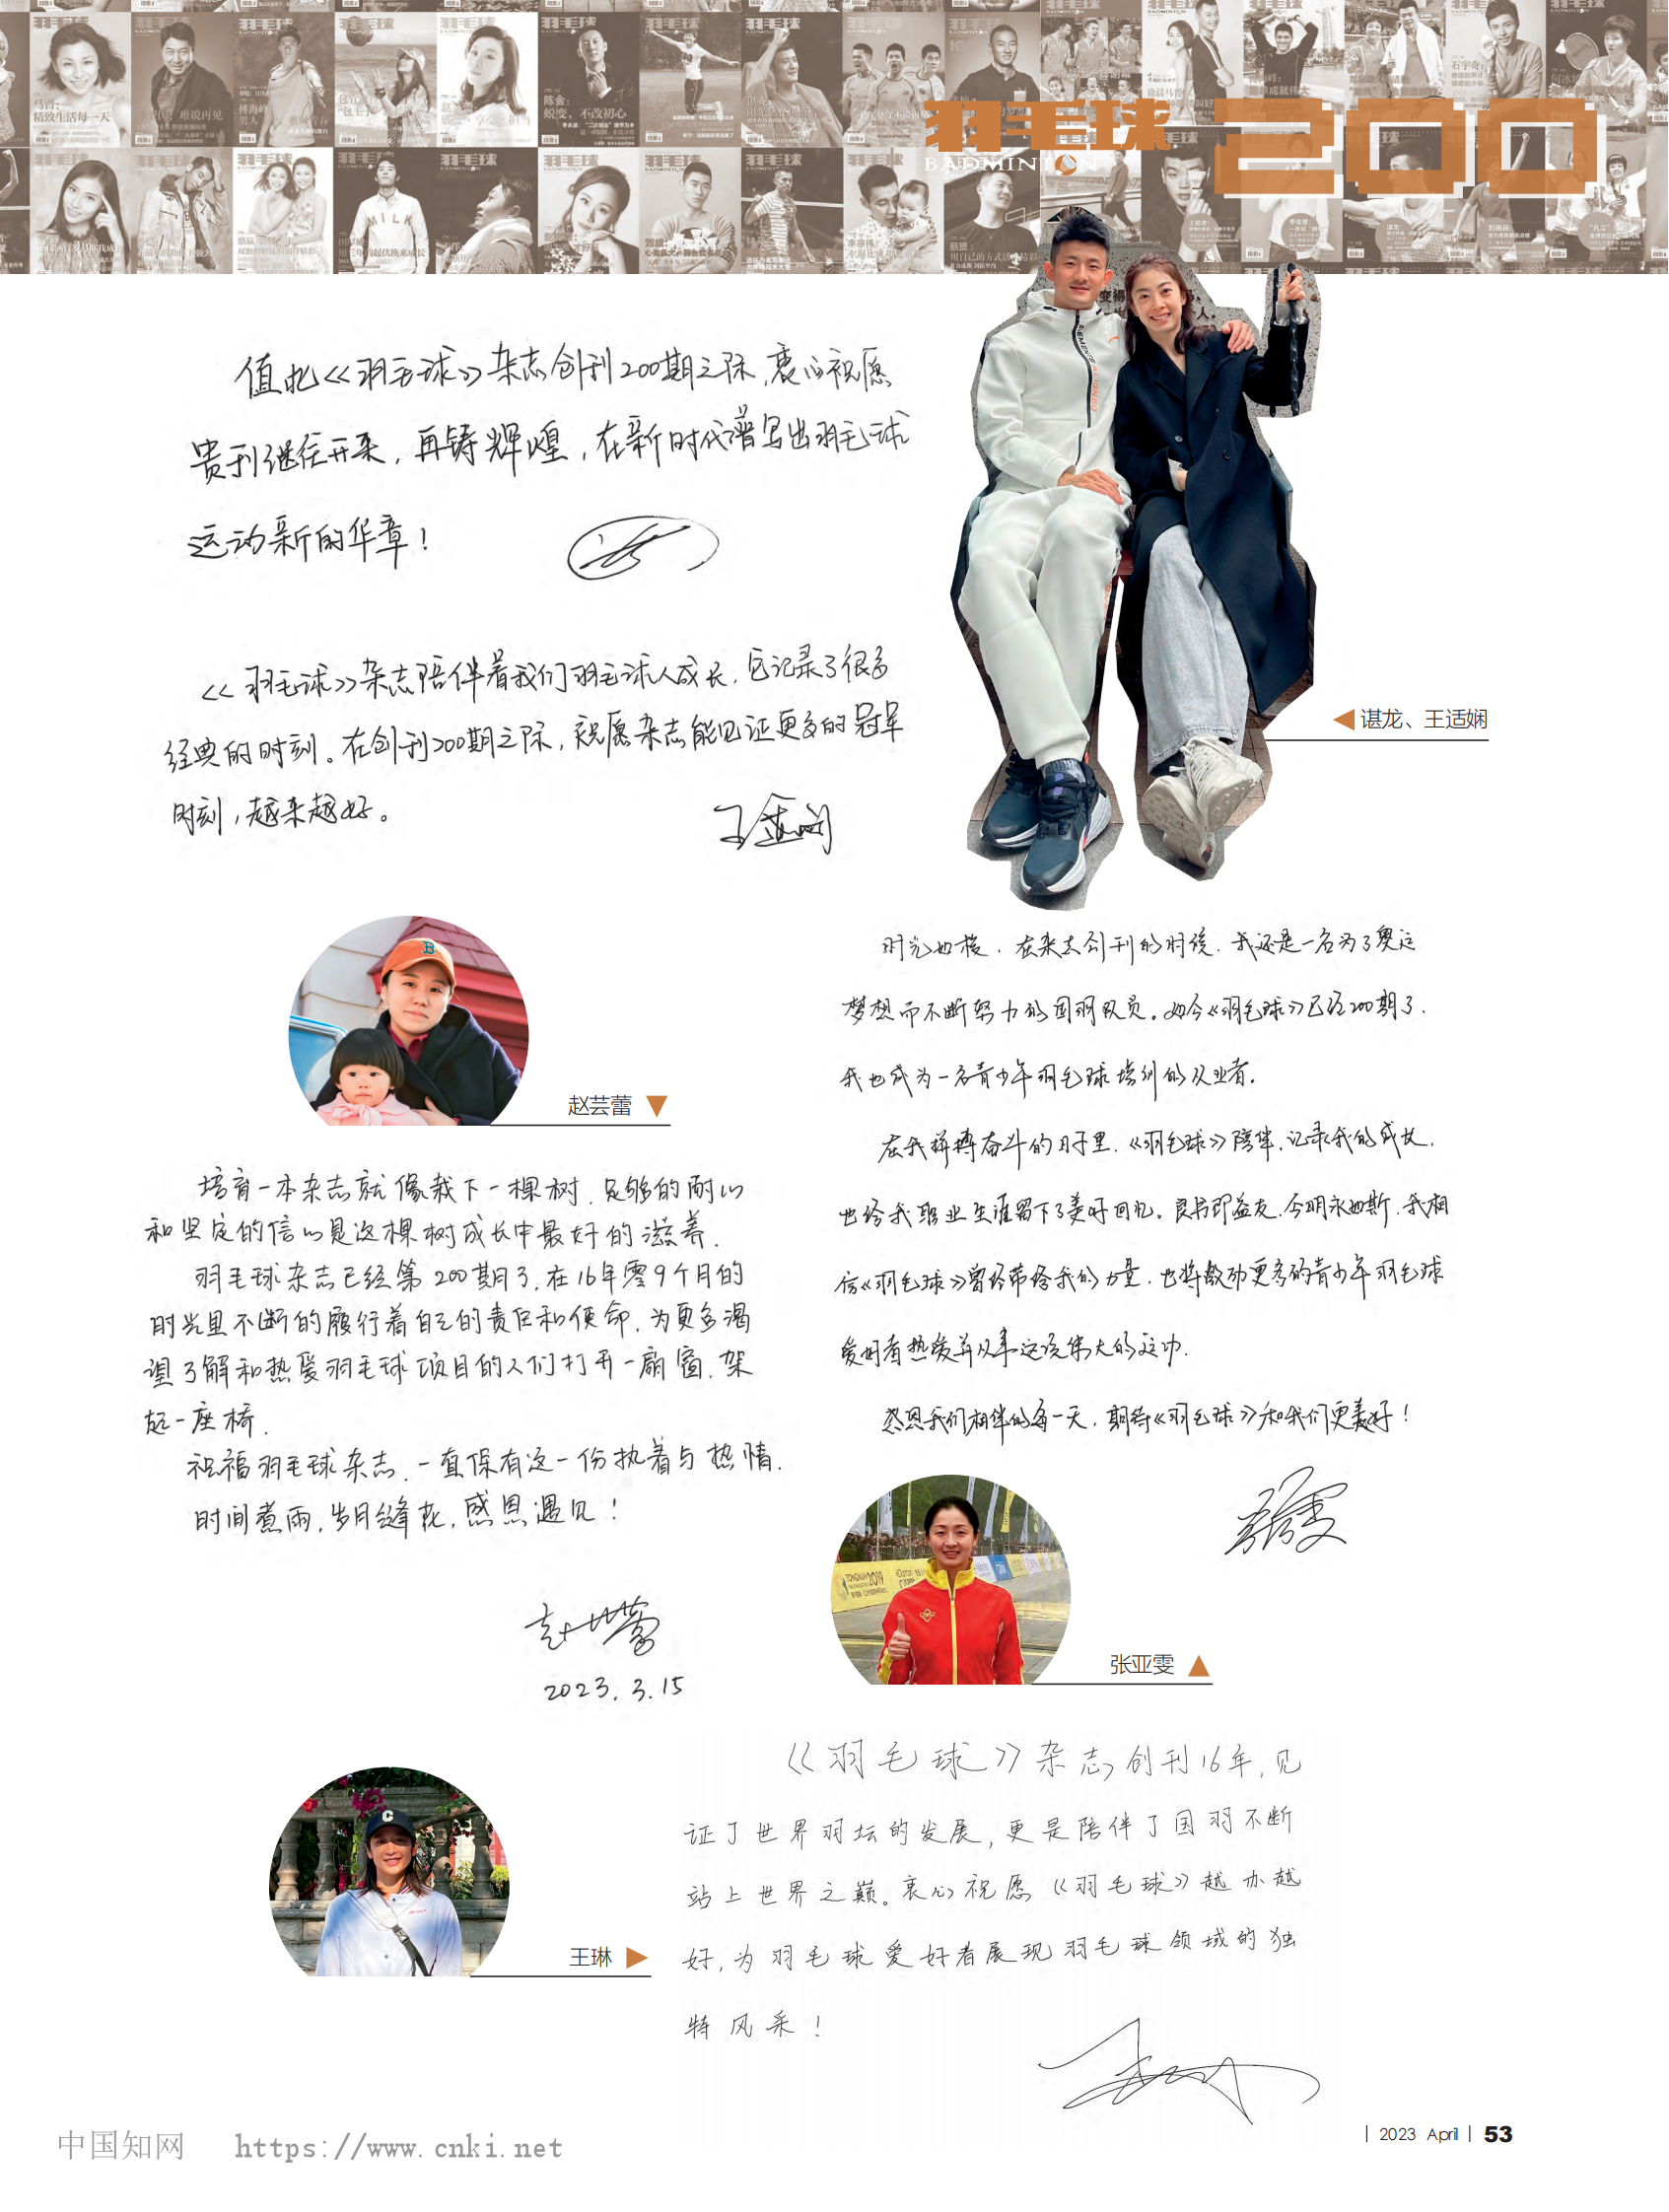 羽毛球
BADMINTON
200
值此《羽毛球》杂志创刊200期之际，衷心祝愿
贵刊继往开来，再铸辉煌，在新时代谱写出羽毛球
运动新的华章！
《羽毛球》杂志陪伴着我们羽毛球人成长，它记录了很多
经典的时刻。在创刊200期之际，祝愿杂志能见证更多的冠军
时刻，越来越好。
王适娴
谌龙、王适娴
赵芸蕾
培育一本杂志就像栽下一棵树，足够的耐心
和坚定的信心是这棵树成长中最好的滋养．
羽毛球杂志已经第200期了，在16年零9个月的
时光里不断的履行着自己的责任和使命，为更多渴
望了解和热爱羽毛球项目的人们打开一扇窗，架
起一座桥．
祝福羽毛球杂志，一直保有这一份执着与热情．
时间煮雨，岁月缝花，感恩遇见！
赵芸蕾
2023.3.15
时光如梭，在杂志创刊的时候，我还是一名为了奥运
梦想而不断努力的国羽队员。如今《羽毛球》已经200期了，
我也成为一名青少年羽毛球培训的从业者。
在我拼搏奋斗的日子里，《羽毛球》陪伴，记录我的成长，
也给我职业生涯留下了美好回忆。良书即益友，今明永如斯，我相
信《羽毛球》曾经带给我的力量，也将激励更多的青少年羽毛球
爱好者热爱并从事这项伟大的运动．
感恩我们相伴的每一天，期待《羽毛球》和我们更美好！
张亚雯
张亚雯
《羽毛球》杂志创刊16年，见
证了世界羽坛的发展，更是陪伴了国羽不断
站上世界之巅。衷心祝愿《羽毛球》越办越
好，为羽毛球爱好者展现羽毛球领域的独
特风采！
王琳
中国知网 https://www.cnki.net
2023 April 53